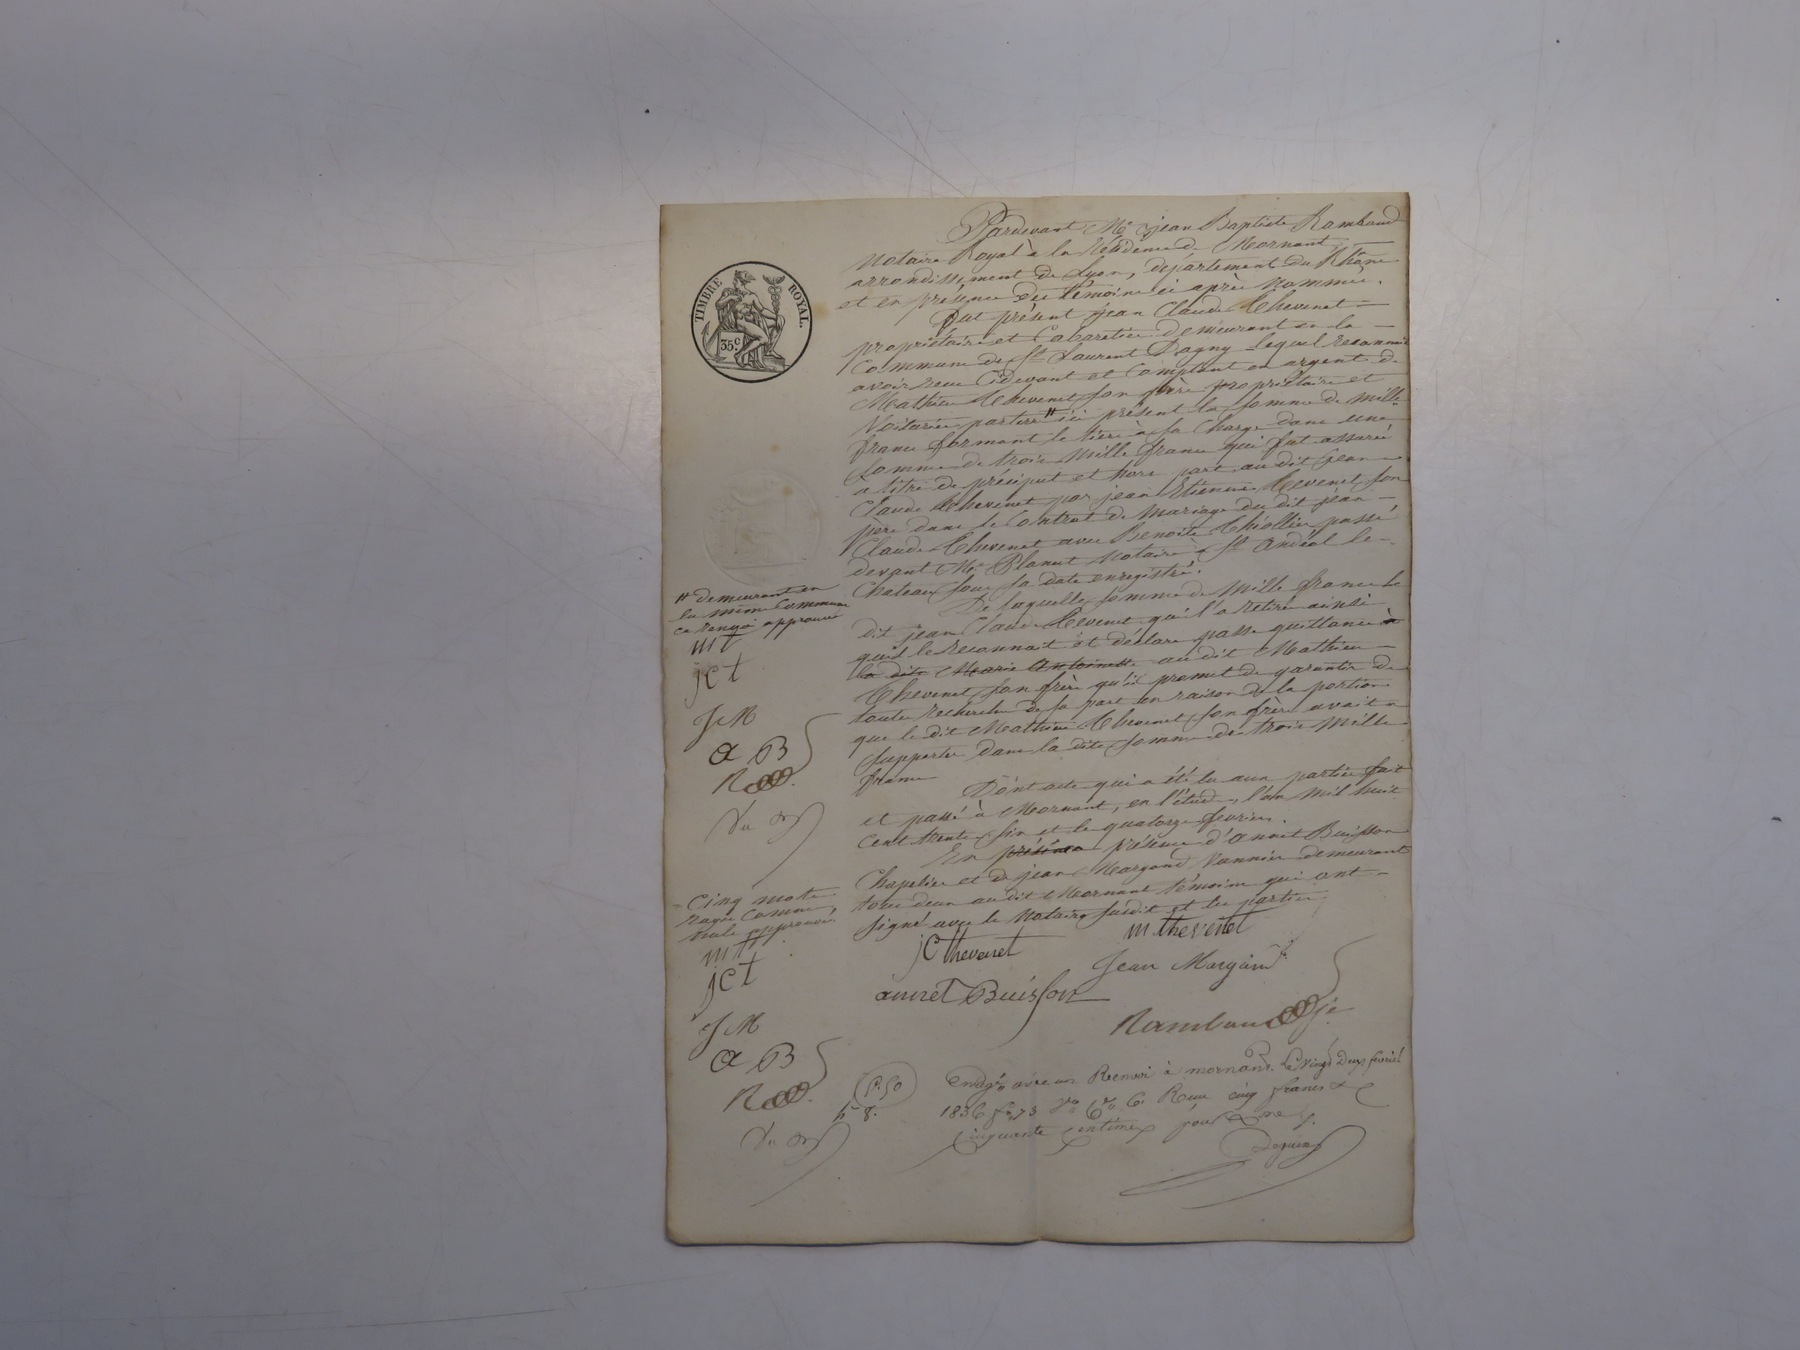 TIMBRE ROYAL.
35c
Pardevant Me jean Baptiste Rambaud
Notaire Royal à la Résidence de Mornant,
arrondissement de Lyon, département du Rhône
et en présence des témoins ci après nommés.
fut présent jean Claude Thevenet
propriétaire et Cabaretier demeurant en la
Commune de St Laurent Dagny lequel reconnait
avoir recu Cidevant et Comptant en argent de
Mathieu Thevenet son frère propriétaire et
Voiturier # ici présent la somme de mille
francs formant le tiers à sa Charge dans une
somme de trois mille francs qui fut assuré
a titre de préciput et hors part au dit jean
Claude Thevenet par jean Etienne Thevenet son
père dans le Contrat de Mariage du dit jean
Claude Thevenet avec Benoite Thiollier passé
devant Me Planut Notaire à St andéol le
Chateau sous sa date enregistré.
De laquelle somme de Mille francs le
dit jean Claude Thevenet qu'il a retiré ainsi
qu'il le reconnait et déclare passe quittance à
la dite Marie Antoinette au dit Mathieu
Thevenet son frère qu'il promet de garantir de
toutes recherches de sa part en raison de la portion
que le dit Mathieu Thevenet son frère avait a
supporter dans la dite somme de trois Mille
francs
Dont acte qui a été lu aux parties fait
et passé à Mornant, en l'étude, l'an mil huit
cent trente six et le quatorze fevrier.
En présence présence d'annet Buisson
Chapelier et de jean Margand Vannier demeurant
tous deux au dit Mornant témoins qui ont
signé avec le Notaire susdit et les parties
# demeurant en
la même Commune
ce renvoi approuvé
mt
jct
JM
a B
R
Cinq mots
rayés comme
nuls approuvés
mt
jct
JM
a B
R
jC thevenet
m thevenet
Jean Margand
annet Buisson
Rambaud
Enregé avec un Renvoi à mornant le vingt Deux fevrier
1836 fo 73 Vo Ce 6. Recu cinq francs
cinquante centimes pour
5.50